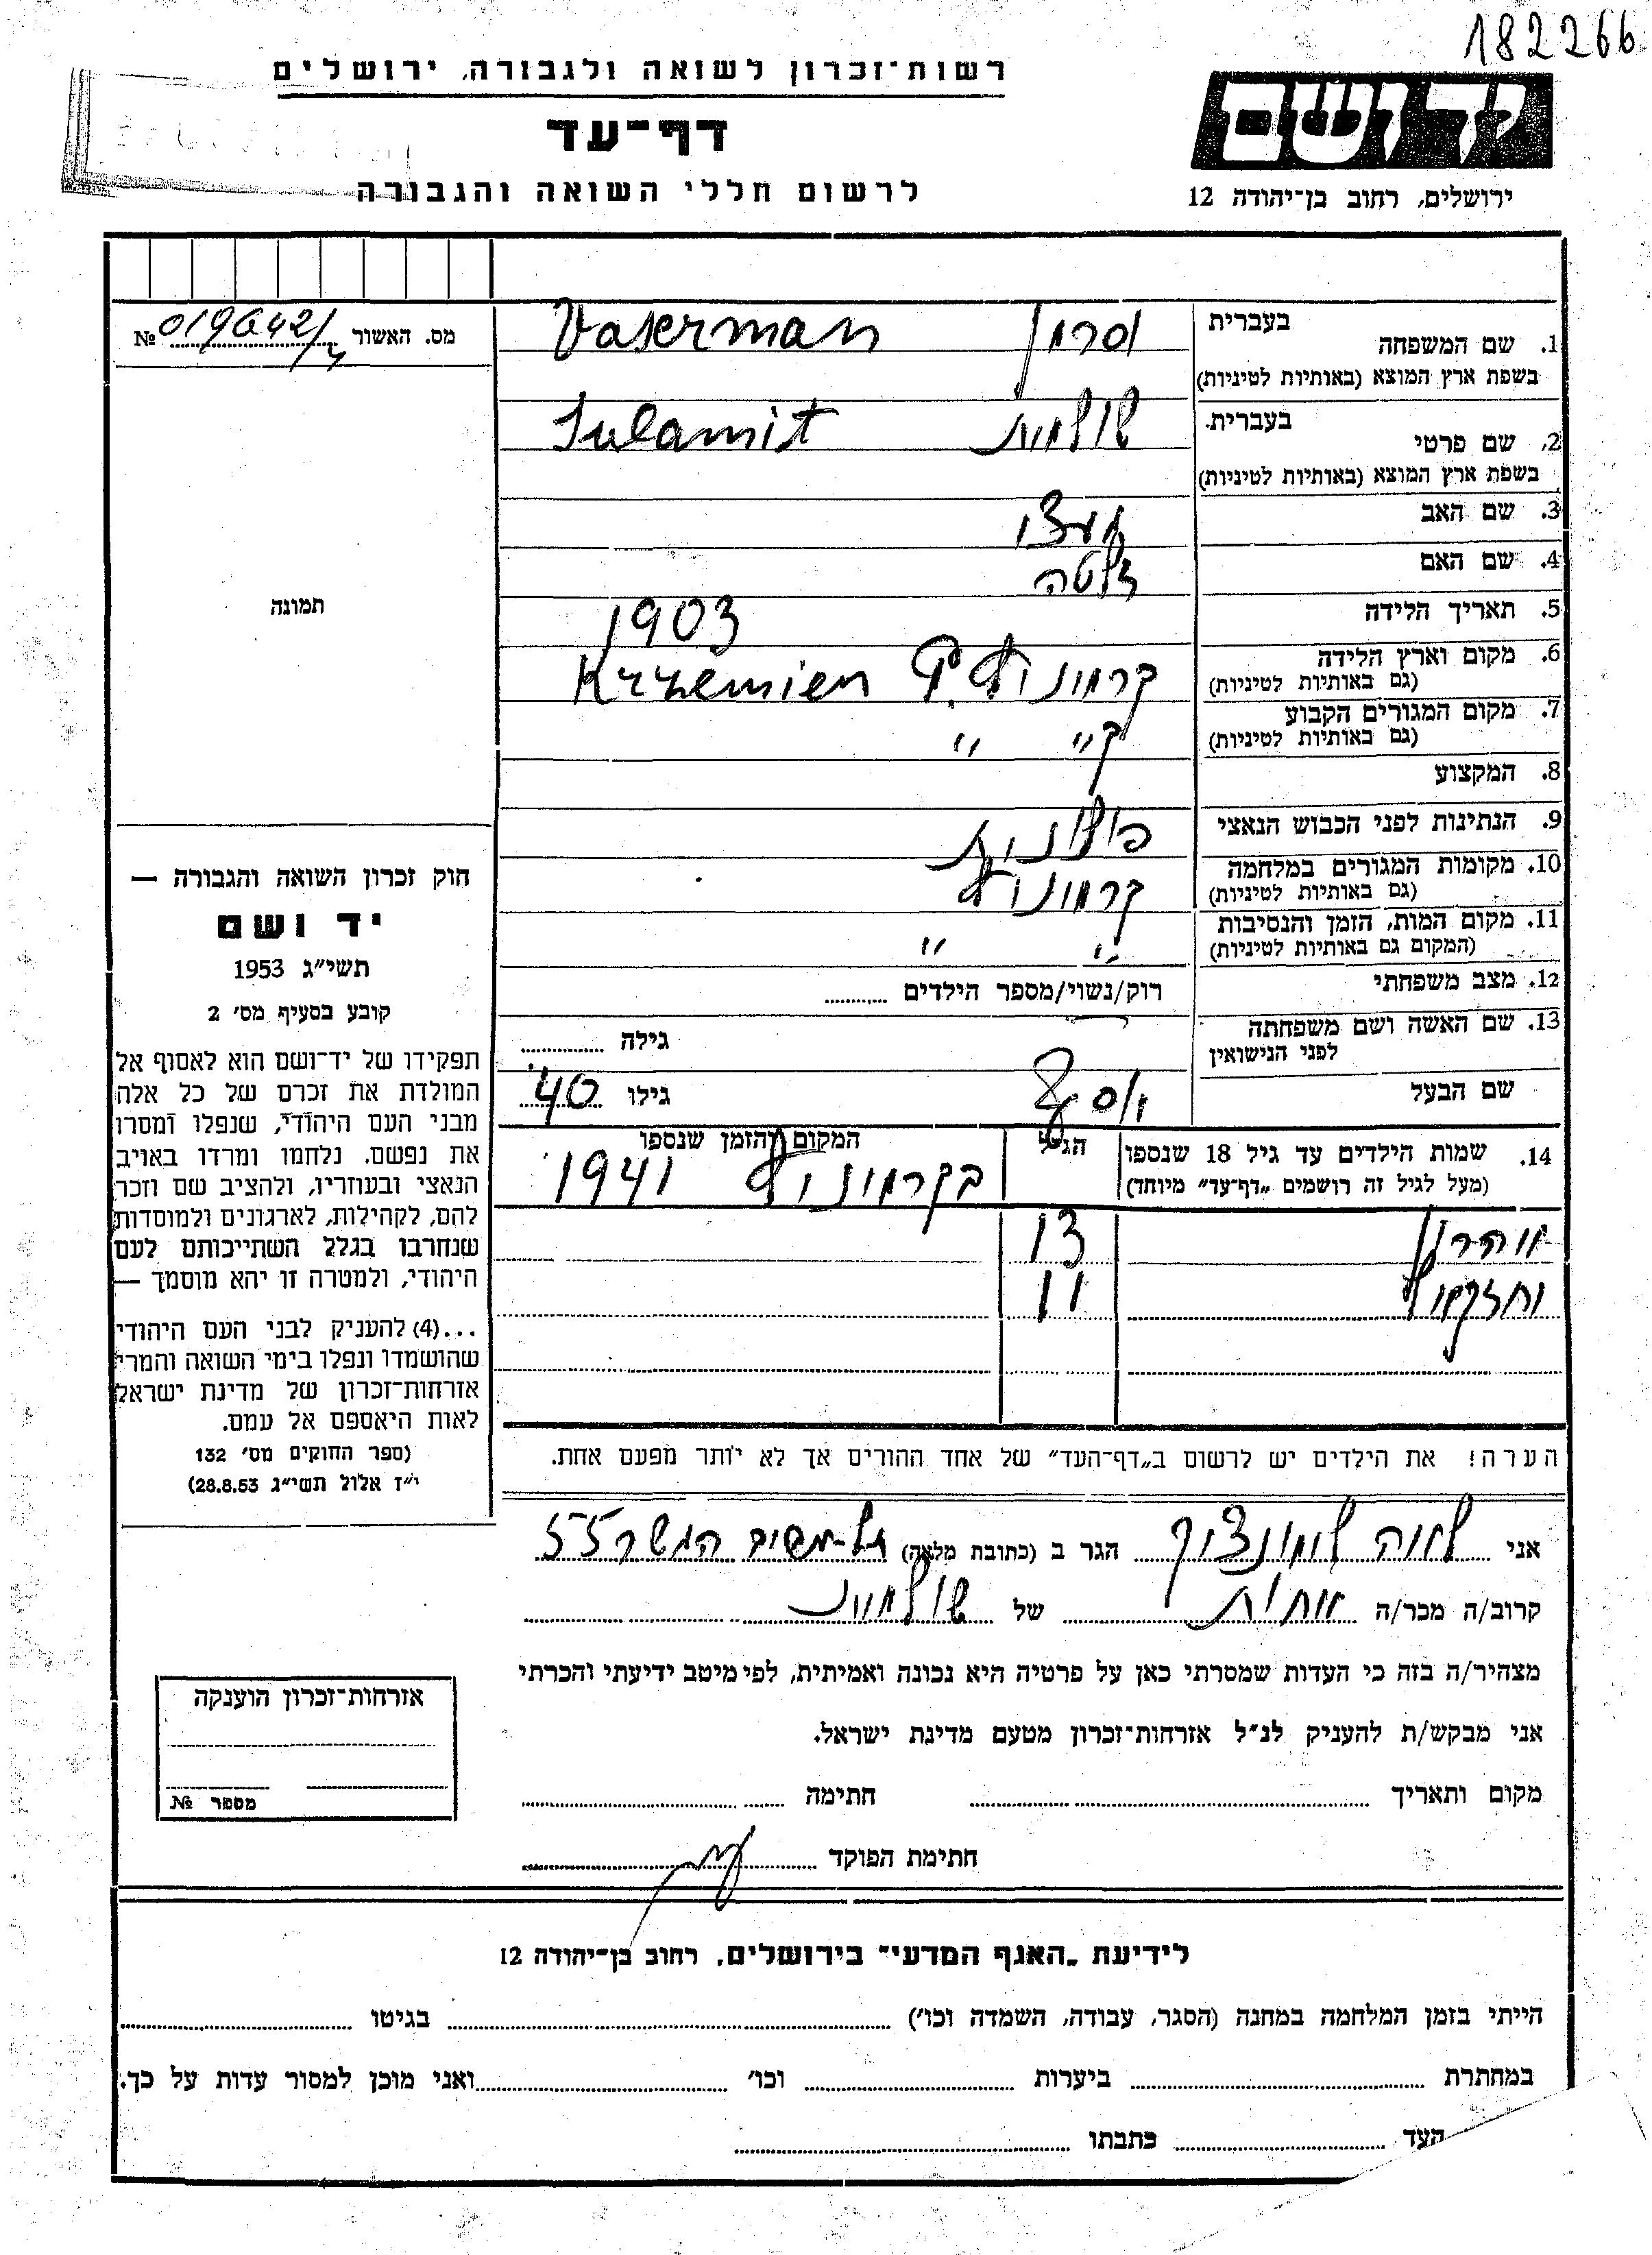 182266
רשות־זכרון לשואה ולגבורה, ירושלים
דף־עד
לרשום חללי השואה והגבורה
יד ושם
ירושלים, רחוב בן־יהודה 12
מס. האשור № 019642/
1. שם המשפחה
בעברית
בשפת ארץ המוצא (באותיות לטיניות)
Vaserman
2. שם פרטי
בעברית
בשפת ארץ המוצא (באותיות לטיניות)
שולמית Sulamit
3. שם האב
4. שם האם
זלטה
5. תאריך הלידה
1903
6. מקום וארץ הלידה
(גם באותיות לטיניות)
Krzemien
7. מקום המגורים הקבוע
(גם באותיות לטיניות)
" "
8. המקצוע
9. הנתינות לפני הכבוש הנאצי
פולנית
10. מקומות המגורים במלחמה
(גם באותיות לטיניות)
11. מקום המות, הזמן והנסיבות
(המקום גם באותיות לטיניות)
" "
12. מצב משפחתי
רוק/נשוי/מספר הילדים
13. שם האשה ושם משפחתה
לפני הנישואין
גילה
שם הבעל
גילו 40
14. שמות הילדים עד גיל 18 שנספו
(מעל לגיל זה רושמים „דף־עד" מיוחד)
הגיל
המקום והזמן שנספו
1941
אהרן 13
יחזקאל 11
הערה! את הילדים יש לרשום ב„דף־העד" של אחד ההורים אך לא יותר מפעם אחת.
תמונה
חוק זכרון השואה והגבורה —
יד ושם
תשי"ג 1953
קובע בסעיף מס' 2
תפקידו של יד־ושם הוא לאסוף אל
המולדת את זכרם של כל אלה
מבני העם היהודי, שנפלו ומסרו
את נפשם. נלחמו ומרדו באויב
הנאצי ובעוזריו, ולהציב שם וזכר
להם, לקהילות, לארגונים ולמוסדות
שנחרבו בגלל השתייכותם לעם
היהודי, ולמטרה זו יהא מוסמך —
...(4) להעניק לבני העם היהודי
שהושמדו ונפלו בימי השואה והמרי
אזרחות־זכרון של מדינת ישראל
לאות היאספם אל עמם.
(ספר החוקים מס' 132
י"ז אלול תשי"ג 28.8.53)
אני הגר ב (כתובת מלאה)
קרוב/ה מכר/ה אחות של שולמית
מצהיר/ה בזה כי העדות שמסרתי כאן על פרטיה היא נכונה ואמיתית, לפי מיטב ידיעתי והכרתי
אני מבקש/ת להעניק לנ"ל אזרחות־זכרון מטעם מדינת ישראל.
מקום ותאריך חתימה
חתימת הפוקד
אזרחות־זכרון הוענקה
מספר №
לידיעת „האגף המדעי" בירושלים. רחוב בן־יהודה 12
הייתי בזמן המלחמה במחנה (הסגר, עבודה, השמדה וכו') בגיטו
במחתרת ביערות וכו' ואני מוכן למסור עדות על כך.
העד כתבתו